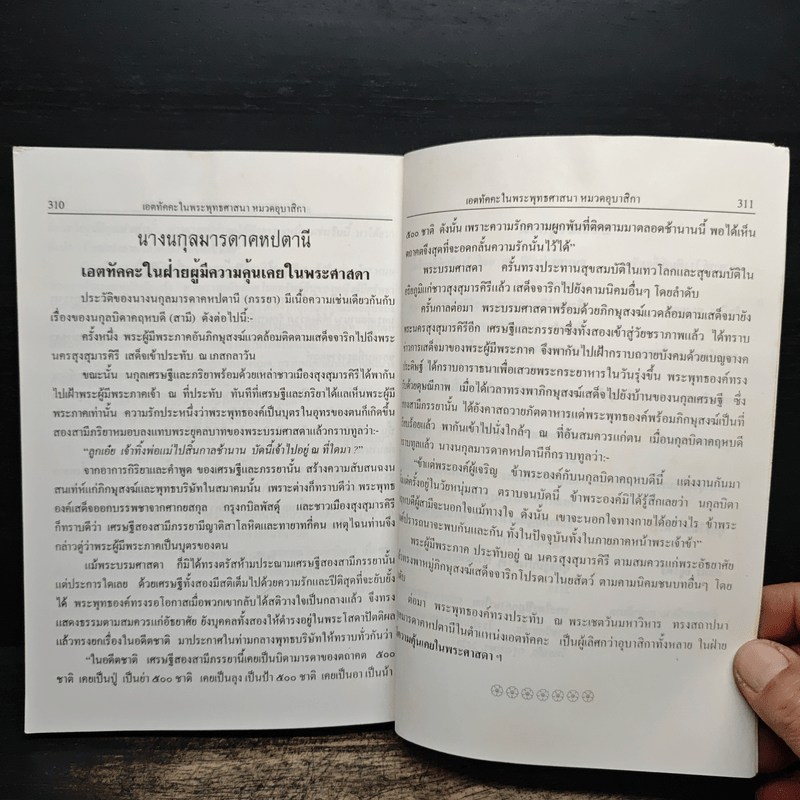 310
เอตทัคคะในพระพุทธศาสนา หมวดอุบาสิกา
นางนกุลมารดาคหปตานี
เอตทัคคะในฝ่ายผู้มีความคุ้นเคยในพระศาสดา
ประวัติของนางนกุลมารดาคหปตานี (ภรรยา) มีเนื้อความเช่นเดียวกันกับ
เรื่องของนกุลบิดาคฤหบดี (สามี) ดังต่อไปนี้:-
ครั้งหนึ่ง พระผู้มีพระภาคอันภิกษุสงฆ์แวดล้อมติดตามเสด็จจาริกไปถึงพระ
นครสุงสุมารคีรี เสด็จเข้าประทับ ณ เภสกลาวัน
ขณะนั้น นกุลเศรษฐีและภริยาพร้อมด้วยเหล่าชาวเมืองสุงสุมารคีรีได้พากัน
ไปเฝ้าพระผู้มีพระภาคเจ้า ณ ที่ประทับ ทันทีที่เศรษฐีและภริยาได้แลเห็นพระผู้มี
พระภาคเท่านั้น ความรักประหนึ่งว่าพระพุทธองค์เป็นบุตรในอุทรของตนก็เกิดขึ้น
สองสามีภริยาหมอบลงแทบพระยุคลบาทของพระบรมศาสดาแล้วกราบทูลว่า:-
“ลูกเอ๋ย เจ้าทิ้งพ่อแม่ไปสิ้นกาลช้านาน บัดนี้เจ้าไปอยู่ ณ ที่ใดมา ?”
จากอาการกิริยาและคำพูด ของเศรษฐีและภรรยานั้น สร้างความสับสนฉงน
สนเท่ห์แก่ภิกษุสงฆ์และพุทธบริษัทในสมาคมนั้น เพราะต่างก็ทราบดีว่า พระพุทธ
องค์เสด็จออกบรรพชาจากศากยสกุล กรุงกบิลพัสดุ์ และชาวเมืองสุงสุมารคีรี
ก็ทราบดีว่า เศรษฐีสองสามีภรรยามีญาติสาโลหิตและทายาทกี่คน เหตุไฉนท่านจึง
กล่าวตู่ว่าพระผู้มีพระภาคเป็นบุตรของตน
แม้พระบรมศาสดา ก็มิได้ทรงตรัสห้ามประณามเศรษฐีสองสามีภรรยานั้น
แต่ประการใดเลย ด้วยเศรษฐีทั้งสองมีสติเต็มไปด้วยความรักและปีติสุดที่จะยับยั้ง
ได้ พระพุทธองค์ทรงรอโอกาสเมื่อพวกเขากลับได้สติวางใจเป็นกลางแล้ว จึงทรง
แสดงธรรมตามสมควรแก่อัธยาศัย ยังบุคคลทั้งสองให้ดำรงอยู่ในพระโสดาปัตติผล
แล้วทรงยกเรื่องในอดีตชาติ มาประกาศในท่ามกลางพุทธบริษัทให้ทราบทั่วกันว่า
“ในอดีตชาติ เศรษฐีสองสามีภรรยานี้เคยเป็นบิดามารดาของตถาคต ๕๐๐
ชาติ เคยเป็นปู่ เป็นย่า ๕๐๐ ชาติ เคยเป็นลุง เป็นป้า ๕๐๐ ชาติ เคยเป็นอา เป็นน้า
เอตทัคคะในพระพุทธศาสนา หมวดอุบาสิกา
311
๕๐๐ ชาติ ดังนั้น เพราะความรักความผูกพันที่ติดตามมาตลอดช้านานนี้ พอได้เห็น
ตถาคตจึงสุดที่จะอดกลั้นความรักนั้นไว้ได้”
พระบรมศาสดา ครั้นทรงประทานสุขสมบัติในเทวโลกและสุขสมบัติใน
อริยภูมิแก่ชาวสุงสุมารคีรีแล้ว เสด็จจาริกไปยังคามนิคมอื่นๆ โดยลำดับ
ครั้นกาลต่อมา พระบรมศาสดาพร้อมด้วยภิกษุสงฆ์แวดล้อมตามเสด็จมายัง
พระนครสุงสุมารคีรีอีก เศรษฐีและภรรยาซึ่งทั้งสองเข้าสู่วัยชราภาพแล้ว ได้ทราบ
ข่าวการเสด็จมาของพระผู้มีพระภาค จึงพากันไปเฝ้ากราบถวายบังคมด้วยเบญจางค
ประดิษฐ์ ได้กราบอาราธนาเพื่อเสวยพระกระยาหารในวันรุ่งขึ้น พระพุทธองค์ทรง
ด้วยดุษณีภาพ เมื่อได้เวลาทรงพาภิกษุสงฆ์เสด็จไปยังบ้านของนกุลเศรษฐี ซึ่ง
สองสามีภรรยานั้น ได้อังคาสถวายภัตตาหารแด่พระพุทธองค์พร้อมภิกษุสงฆ์เป็นที่
เรียบร้อยแล้ว พากันเข้าไปนั่งใกล้ๆ ณ ที่อันสมควรแก่ตน เมื่อนกุลบิดาคฤหบดี
กราบทูลแล้ว นางนกุลมารดาคหปตานีก็กราบทูลว่า:-
“ข้าแต่พระองค์ผู้เจริญ ข้าพระองค์กับนกุลบิดาคฤหบดีนี้ แต่งงานกันมา
ตั้งแต่ครั้งอยู่ในวัยหนุ่มสาว ตราบจนบัดนี้ ข้าพระองค์มิได้รู้สึกเลยว่า นกุลบิดา
คฤหบดีผู้สามีจะนอกใจแม้ทางใจ ดังนั้น เขาจะนอกใจทางกายได้อย่างไร ข้าพระ
องค์ปรารถนาจะพบกันและกัน ทั้งในปัจจุบันทั้งในภายภาคหน้าพระเจ้าข้า”
พระผู้มีพระภาค ประทับอยู่ ณ นครสุงสุมารคีรี ตามสมควรแก่พระอัธยาศัย
แล้วทรงพาหมู่ภิกษุสงฆ์เสด็จจาริกโปรดเวไนยสัตว์ ตามคามนิคมชนบทอื่นๆ โดย
ลำดับ
ต่อมา พระพุทธองค์ทรงประทับ ณ พระเชตวันมหาวิหาร ทรงสถาปนา
นกุลมารดาคหปตานีในตำแหน่งเอตทัคคะ เป็นผู้เลิศกว่าอุบาสิกาทั้งหลาย ในฝ่าย
ผู้มีความคุ้นเคยในพระศาสดา ฯ